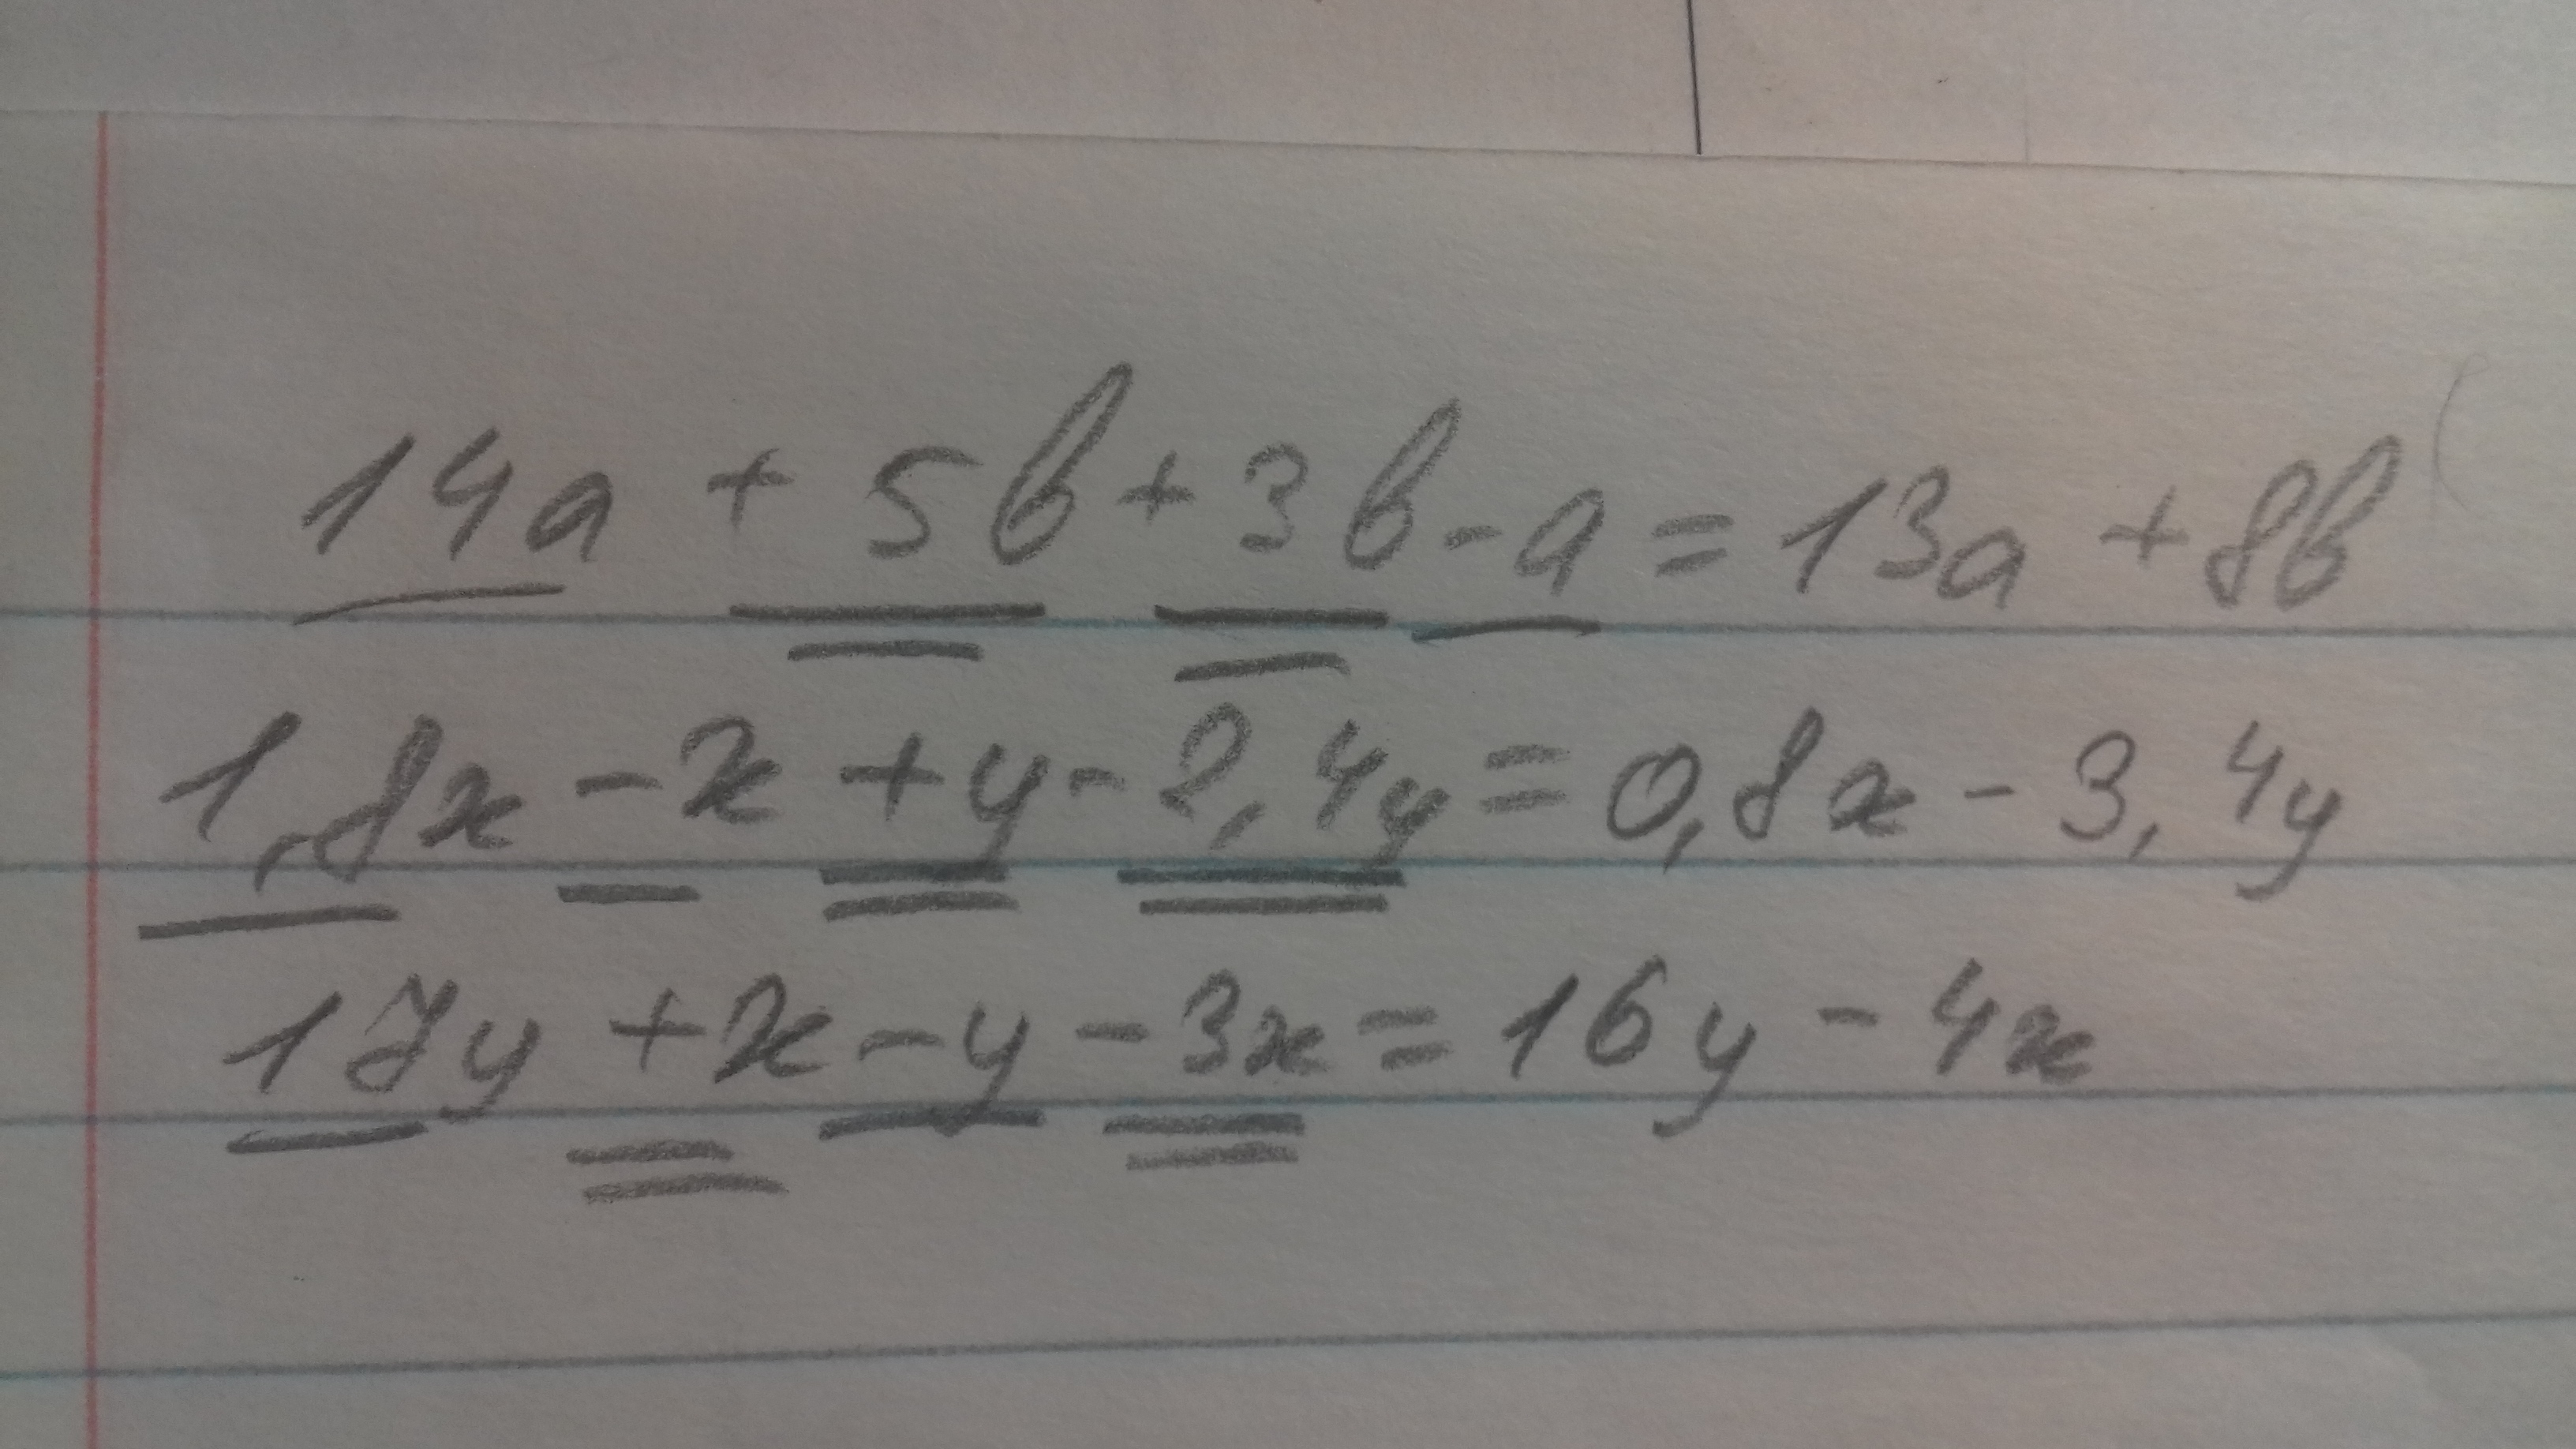 14a + 5b + 3b - a = 13a + 8b
1,8x - x + y - 2,4y = 0,8x - 3,4y
17y + x - y - 3x = 16y - 4x